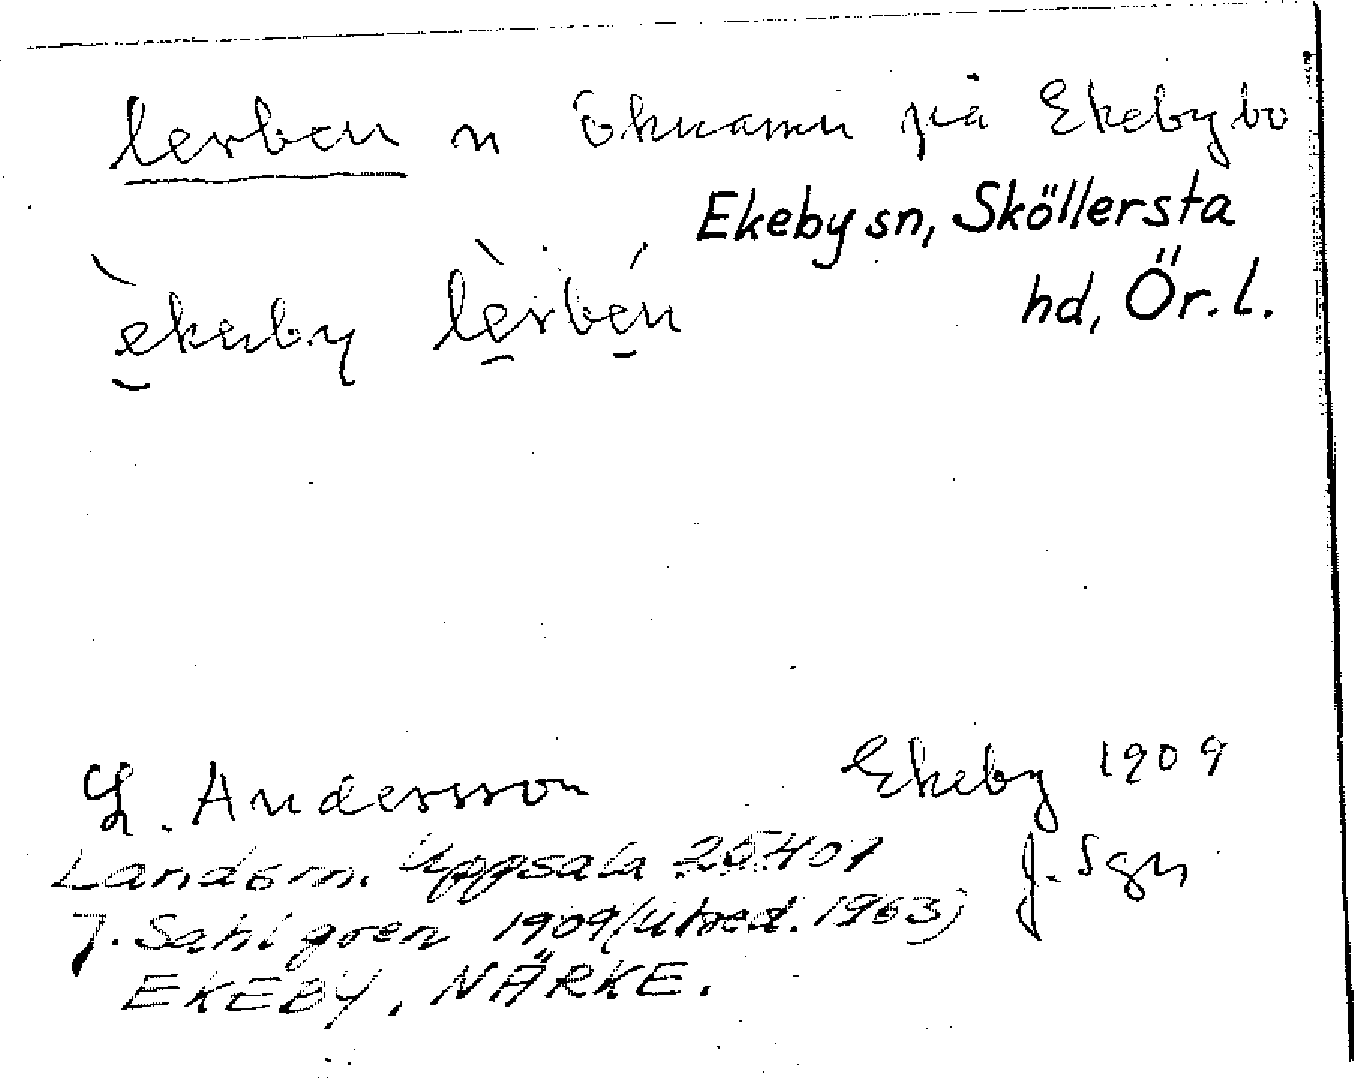 lerben n öknamn på Ekebybo
Ekeby sn, Sköllersta
hd, Ör. l.
èkeby lèrbén
L. Andersson Ekeby 1909
Landsm. Uppsala 25401 J. Sgn
J. Sahlgren 1909 (utred. 1963)
EKEBY, NÄRKE.